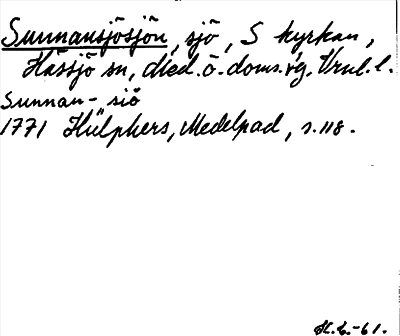 Sunnansjösjön, sjö, S kyrkan,
Hässjö sn, Med. ö. doms. rg. Vnl. l.
Sunnan-siö
1771 Hülphers, Medelpad, s. 118.
H.G.-61.